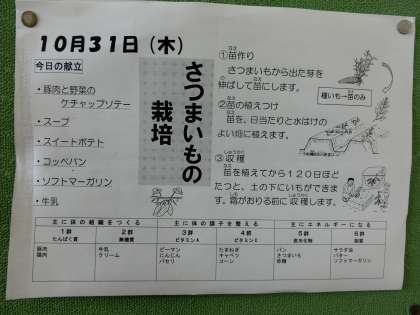 10月31日（木）
今日の献立
・豚肉と野菜の
ケチャップソテー
・スープ
・スイートポテト
・コッペパン
・ソフトマーガリン
・牛乳
さつまいもの
栽培
①苗作り
さつまいもから出た芽を
伸ばして苗にします。
種いも→苗のみ
②苗の植えつけ
苗を、日当たりと水はけの
よい畑に植えます。
③収穫
苗を植えてから120日ほど
たつと、土の下にいもができま
す。霜がおりる前に収穫します。
主に体の組織をつくる
主に体の調子を整える
主にエネルギーになる
1群 たんぱく質
2群 無機質
3群 ビタミンA
4群 ビタミンC
5群 炭水化物
6群 脂質
豚肉
鶏肉
牛乳
クリーム
ピーマン
にんじん
パセリ
たまねぎ
キャベツ
コーン
パン
さつまいも
砂糖
サラダ油
バター
ソフトマーガリン